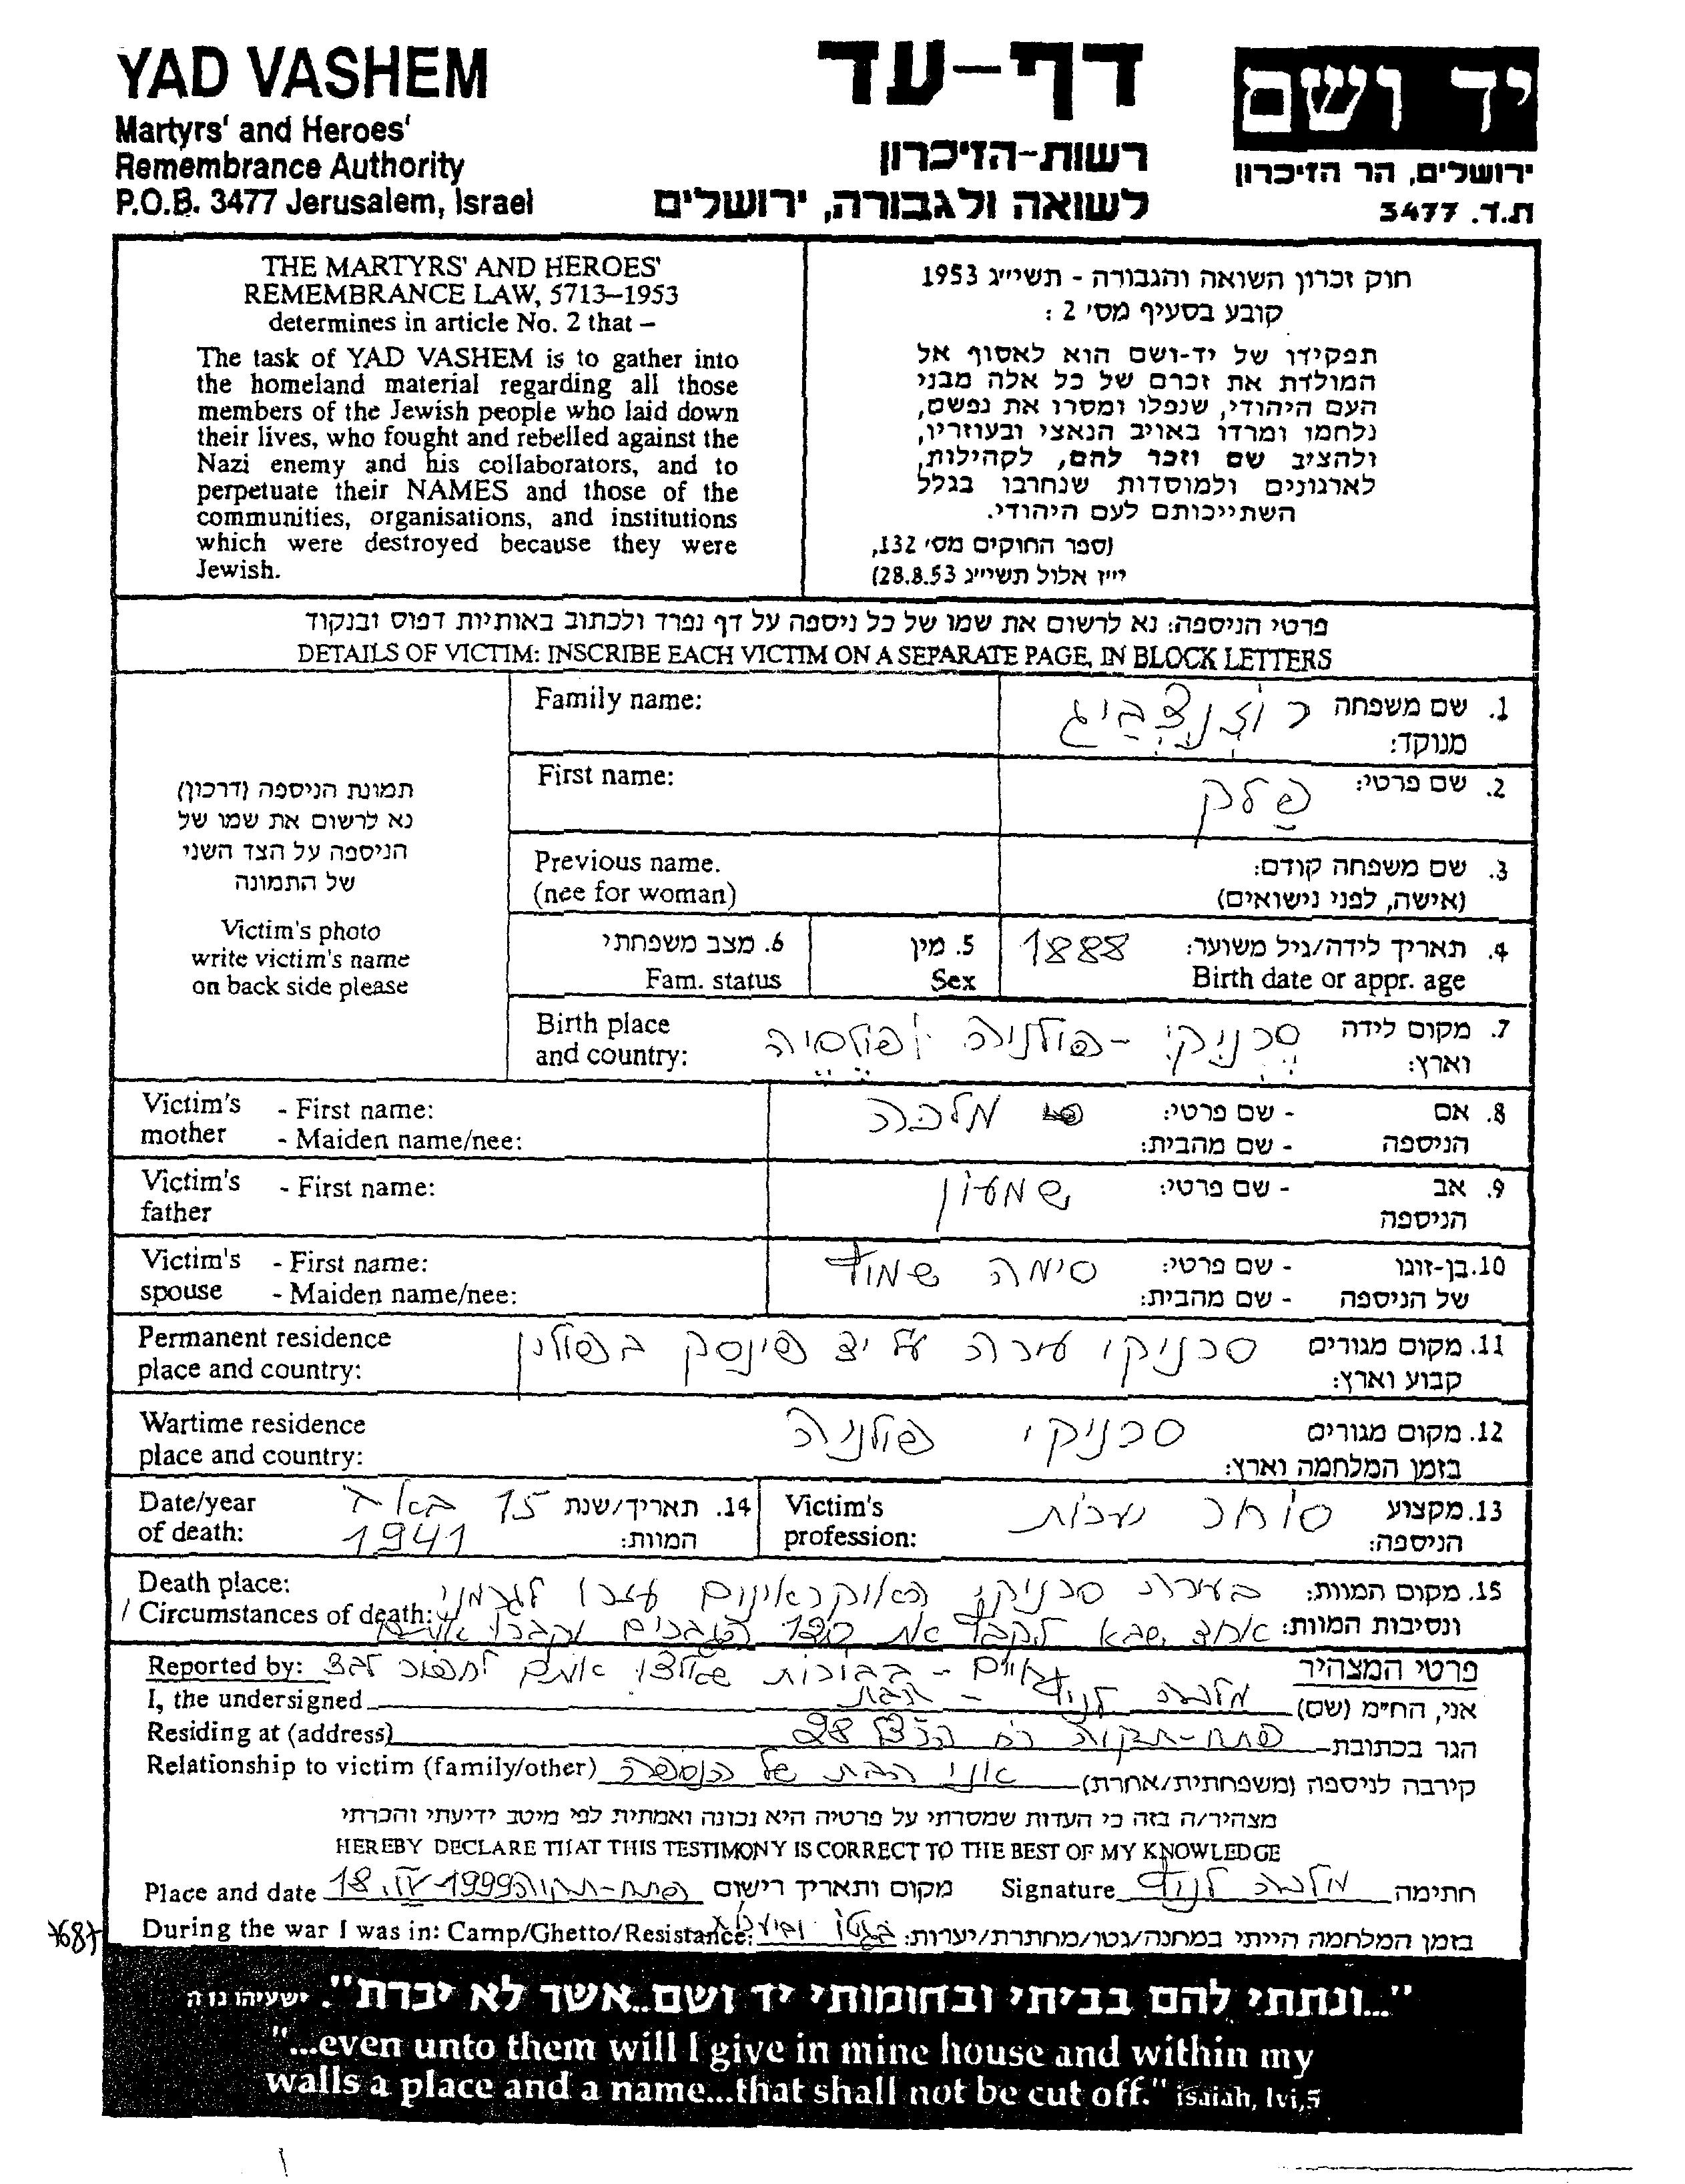 YAD VASHEM
Martyrs' and Heroes'
Remembrance Authority
P.O.B. 3477 Jerusalem, Israel
דף-עד
רשות-הזיכרון
לשואה ולגבורה, ירושלים
יד ושם
ירושלים, הר הזיכרון
ת.ד. 3477
THE MARTYRS' AND HEROES'
REMEMBRANCE LAW, 5713–1953
determines in article No. 2 that –
The task of YAD VASHEM is to gather into
the homeland material regarding all those
members of the Jewish people who laid down
their lives, who fought and rebelled against the
Nazi enemy and his collaborators, and to
perpetuate their NAMES and those of the
communities, organisations, and institutions
which were destroyed because they were
Jewish.
חוק זכרון השואה והגבורה - תשי״ג 1953
קובע בסעיף מס' 2 :
תפקידו של יד-ושם הוא לאסוף אל
המולדת את זכרם של כל אלה מבני
העם היהודי, שנפלו ומסרו את נפשם,
נלחמו ומרדו באויב הנאצי ובעוזריו,
ולהציב שם וזכר להם, לקהילות,
לארגונים ולמוסדות שנחרבו בגלל
השתייכותם לעם היהודי.
(ספר החוקים מס' 132,
י״ז אלול תשי״ג 28.8.53)
פרטי הניספה: נא לרשום את שמו של כל ניספה על דף נפרד ולכתוב באותיות דפוס ובנקוד
DETAILS OF VICTIM: INSCRIBE EACH VICTIM ON A SEPARATE PAGE, IN BLOCK LETTERS
תמונת הניספה (דרכון)
נא לרשום את שמו של
הניספה על הצד השני
של התמונה
Victim's photo
write victim's name
on back side please
Family name:
1. שם משפחה רוזנצביג
מנוקד:
First name:
2. שם פרטי: פלק
Previous name.
(nee for woman)
3. שם משפחה קודם:
(אישה, לפני נישואים)
4. תאריך לידה/גיל משוער: 1888
Birth date or appr. age
5. מין
Sex
6. מצב משפחתי
Fam. status
Birth place
and country:
7. מקום לידה סרניקי - פולניה פולסיה
וארץ:
Victim's - First name:
mother - Maiden name/nee:
8. אם - שם פרטי: מלכה
הניספה - שם מהבית:
Victim's - First name:
father
9. אב - שם פרטי: שמעון
הניספה
Victim's - First name:
spouse - Maiden name/nee:
10. בן-זוגו - שם פרטי: סימה
של הניספה - שם מהבית:
Permanent residence
place and country:
11. מקום מגורים סרניקי עירה על יד פינסק בפולין
קבוע וארץ:
Wartime residence
place and country:
12. מקום מגורים סרניקי פולניה
בזמן המלחמה וארץ:
Date/year
of death:
14. תאריך/שנת 15
המוות: 1941
Victim's
profession:
13. מקצוע סוחר
הניספה:
Death place:
/ Circumstances of death:
15. מקום המוות: בעירה סרניקי האוקראינים עזרו לגרמני
ונסיבות המוות: אחד שבא את 120 הגברים
Reported by:
פרטי המצהיר
I, the undersigned
אני, הח״מ (שם) מלכה - הבת
Residing at (address)
הגר בכתובת פתח-תקוה 28
Relationship to victim (family/other)
קירבה לניספה (משפחתית/אחרת) אני הבת של הנספה
מצהיר/ה בזה כי העדות שמסרתי על פרטיה היא נכונה ואמתית לפי מיטב ידיעתי והכרתי
HEREBY DECLARE THAT THIS TESTIMONY IS CORRECT TO THE BEST OF MY KNOWLEDGE
Place and date 18.IV-1999 פתח-תקוה מקום ותאריך רישום
Signature מלכה חתימה
During the war I was in: Camp/Ghetto/Resistance:
בזמן המלחמה הייתי במחנה/גטו/מחתרת/יערות: בגטו
"...ונתתי להם בביתי ובחומותי יד ושם..אשר לא יכרת". ישעיהו נו ה
"...even unto them will I give in mine house and within my
walls a place and a name...that shall not be cut off." isaiah, lvi,5